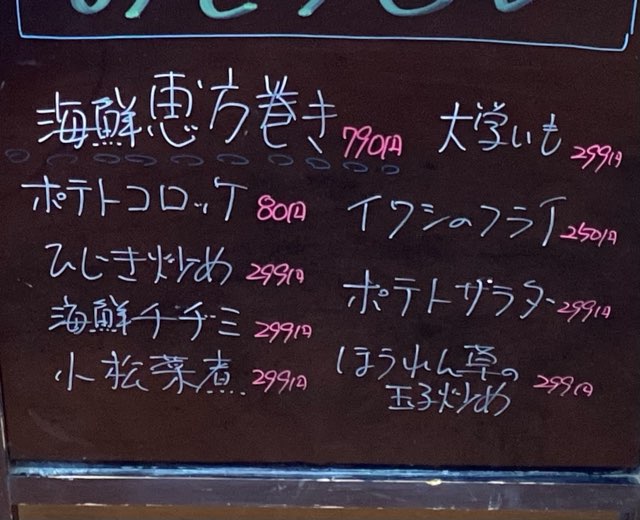 海鮮恵方巻き 790円
大学いも 299円
ポテトコロッケ 80円
イワシのフライ 250円
ひじき炒め 299円
ポテトサラダ 299円
海鮮チヂミ 299円
小松菜煮 299円
ほうれん草の
玉子炒め 299円